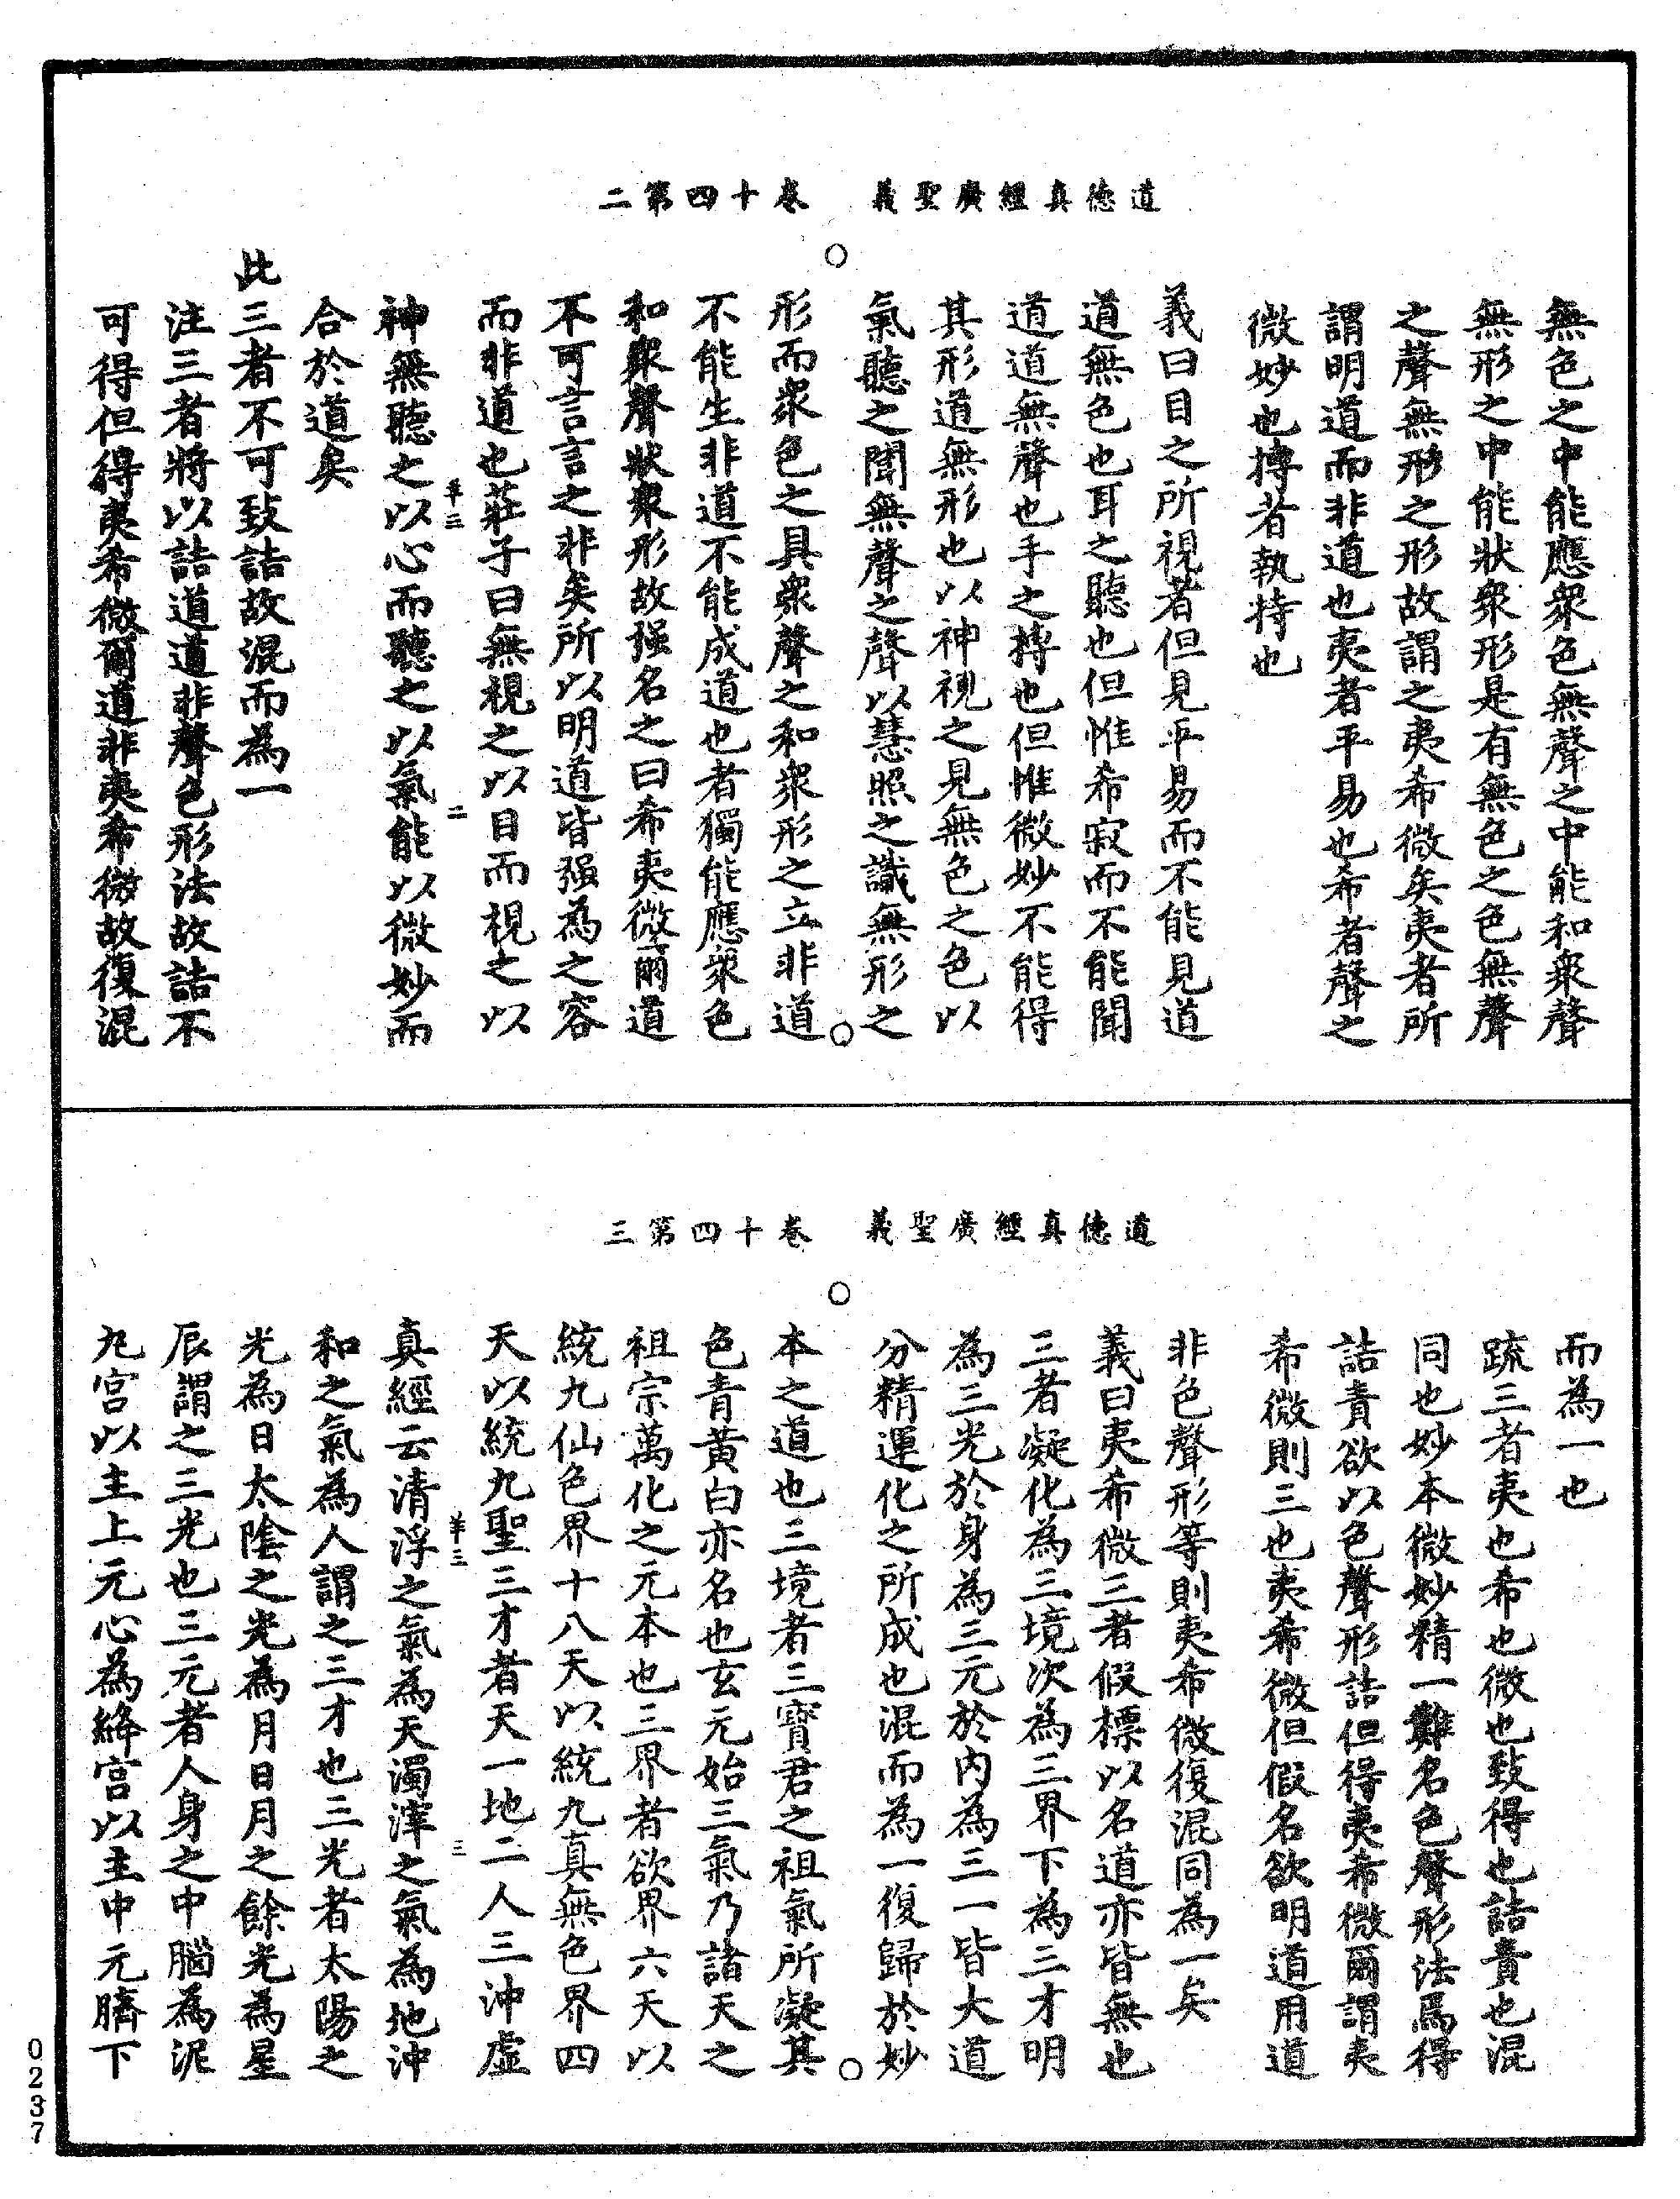 道德真經廣聖義　卷十四第二
無色之中能應眾色無聲之中能和眾聲
無形之中能狀眾形是有無色之色無聲
之聲無形之形故謂之夷希微矣夷者所
謂明道而非道也夷者平易也希者聲之
微妙也摶者執持也
義曰目之所視者但見平易而不能見道
道無色也耳之聽也但惟希寂而不能聞
道道無聲也手之摶也但惟微妙不能得
其形道無形也以神視之見無色之色以
氣聽之聞無聲之聲以慧照之識無形之
形而眾色之具眾聲之和眾形之立非道
不能生非道不能成道也者獨能應眾色
和眾聲狀眾形故强名之曰希夷微爾道
不可言言之非矣所以明道皆强為之容
而非道也莊子曰無視之以目而視之以
羊三　二
神無聽之以心而聽之以氣能以微妙而
合於道矣
此三者不可致詰故混而為一
注三者將以詰道道非聲色形法故詰不
可得但得夷希微爾道非夷希微故復混
道德真經廣聖義　卷十四第三
而為一也
䟽三者夷也希也微也致得也詰責也混
同也妙本微妙精一難名色聲形法焉得
詰責欲以色聲形詰但得夷希微爾謂夷
希微則三也夷希微但假名欲明道用道
非色聲形等則夷希微復混同為一矣
義曰夷希微三者假標以名道亦皆無也
三者凝化為三境次為三界下為三才明
為三光於身為三元於內為三一皆大道
分精運化之所成也混而為一復歸於妙
本之道也三境者三寶君之祖氣所凝其
色青黃白亦名也玄元始三氣乃諸天之
祖宗萬化之元本也三界者欲界六天以
統九仙色界十八天以統九真無色界四
天以統九聖三才者天一地二人三沖虛
羊三　三
真經云清浮之氣為天濁滓之氣為地沖
和之氣為人謂之三才也三光者太陽之
光為日太陰之光為月日月之餘光為星
辰謂之三光也三元者人身之中腦為泥
九宮以主上元心為絳宮以主中元臍下
0237